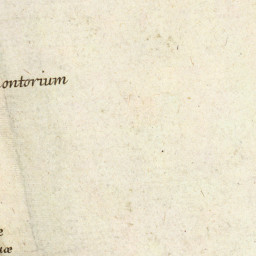 ontorium
e
uæ